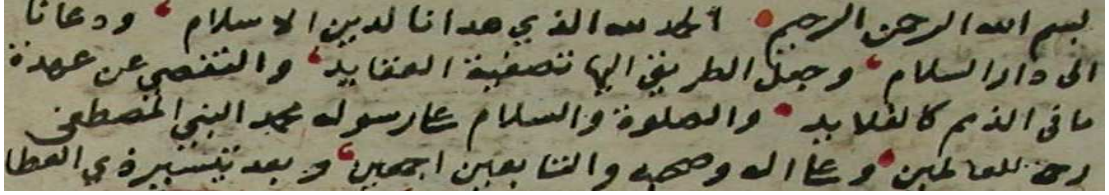 بسم الله الرحمن الرحيم الحمد لله الذي هدانا لدين الاسلام ودعانا
الى دار السلام وجعل الطريق اليها تصفية العقايد والتفصي عن عهدة
ما في الذمم كالقلايد والصلوة والسلام على رسوله محمد النبي المصطفى
رحمة للعالمين وعلى اله وصحبه والتابعين اجمعين وبعد تيسير ذي العطا